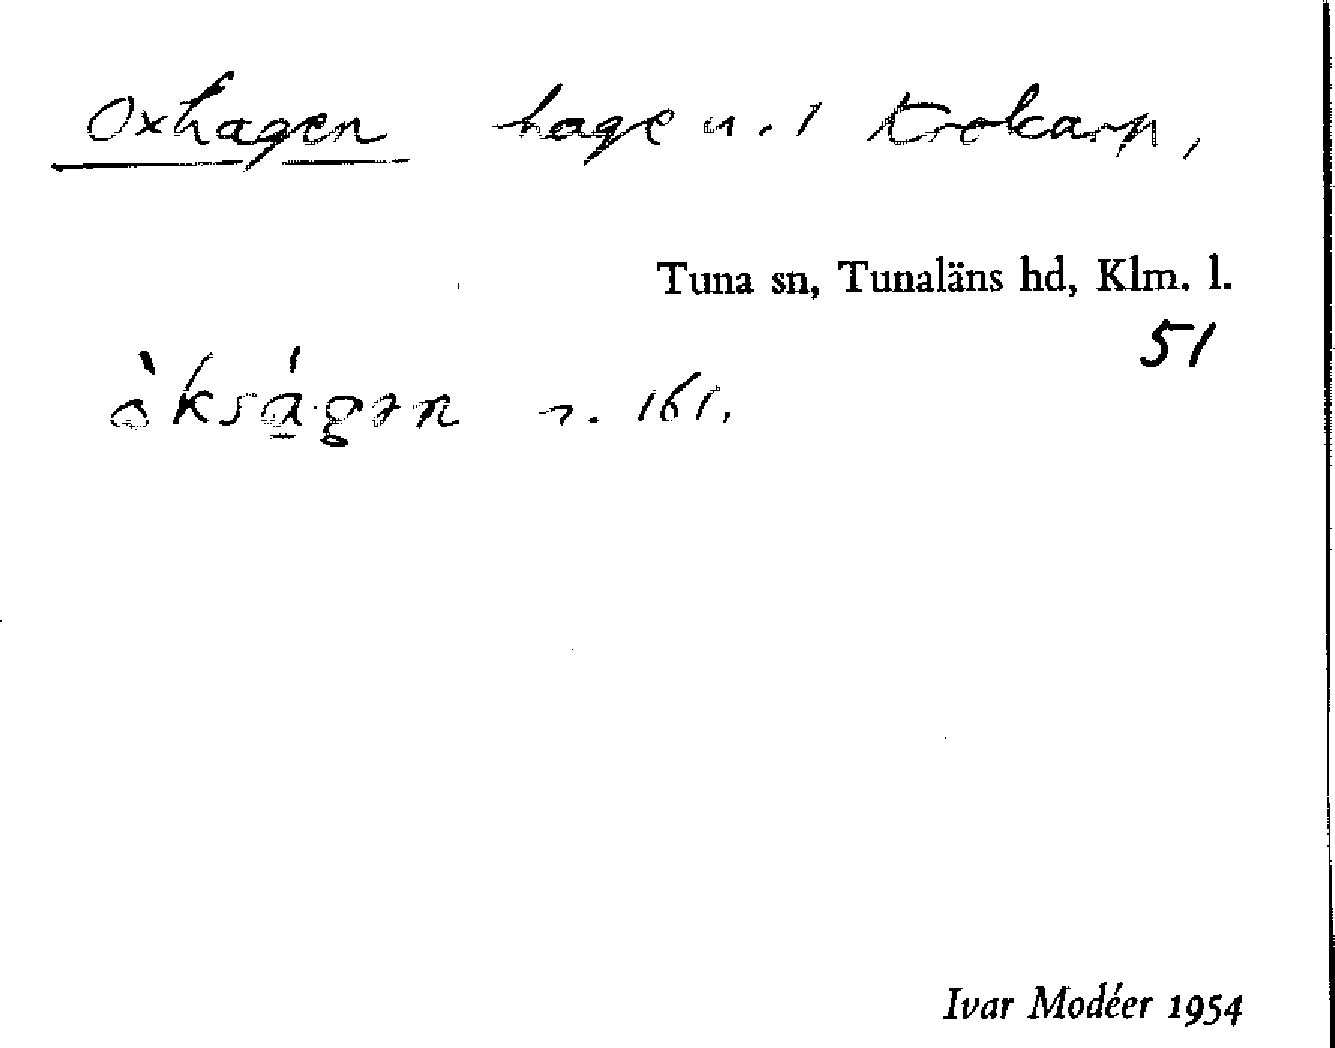 Oxhagen hage u. 1 Krokarp,
Tuna sn, Tunaläns hd, Klm. l.
51
n. 161.
Ivar Modéer 1954